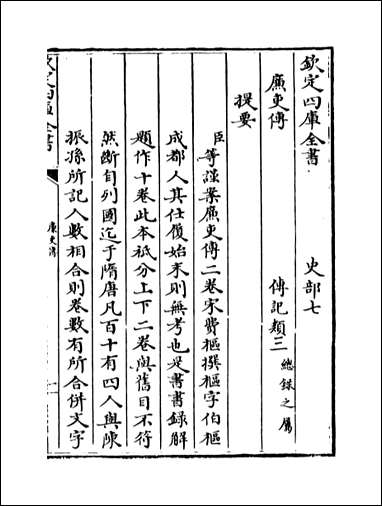 欽定四庫全書　史部七
廉吏傳　傳記類三總錄之屬
提要
臣等謹案廉吏傳二卷宋費樞撰樞字伯樞
成都人其仕履始末則無考也是書書錄解
題作十卷此本祗分上下二卷與舊目不符
然斷自列國迄于隋唐凡百十有四人與陳
振孫所記人數相合則卷數有所合併文字
欽定四庫全書
廉吏傳
一